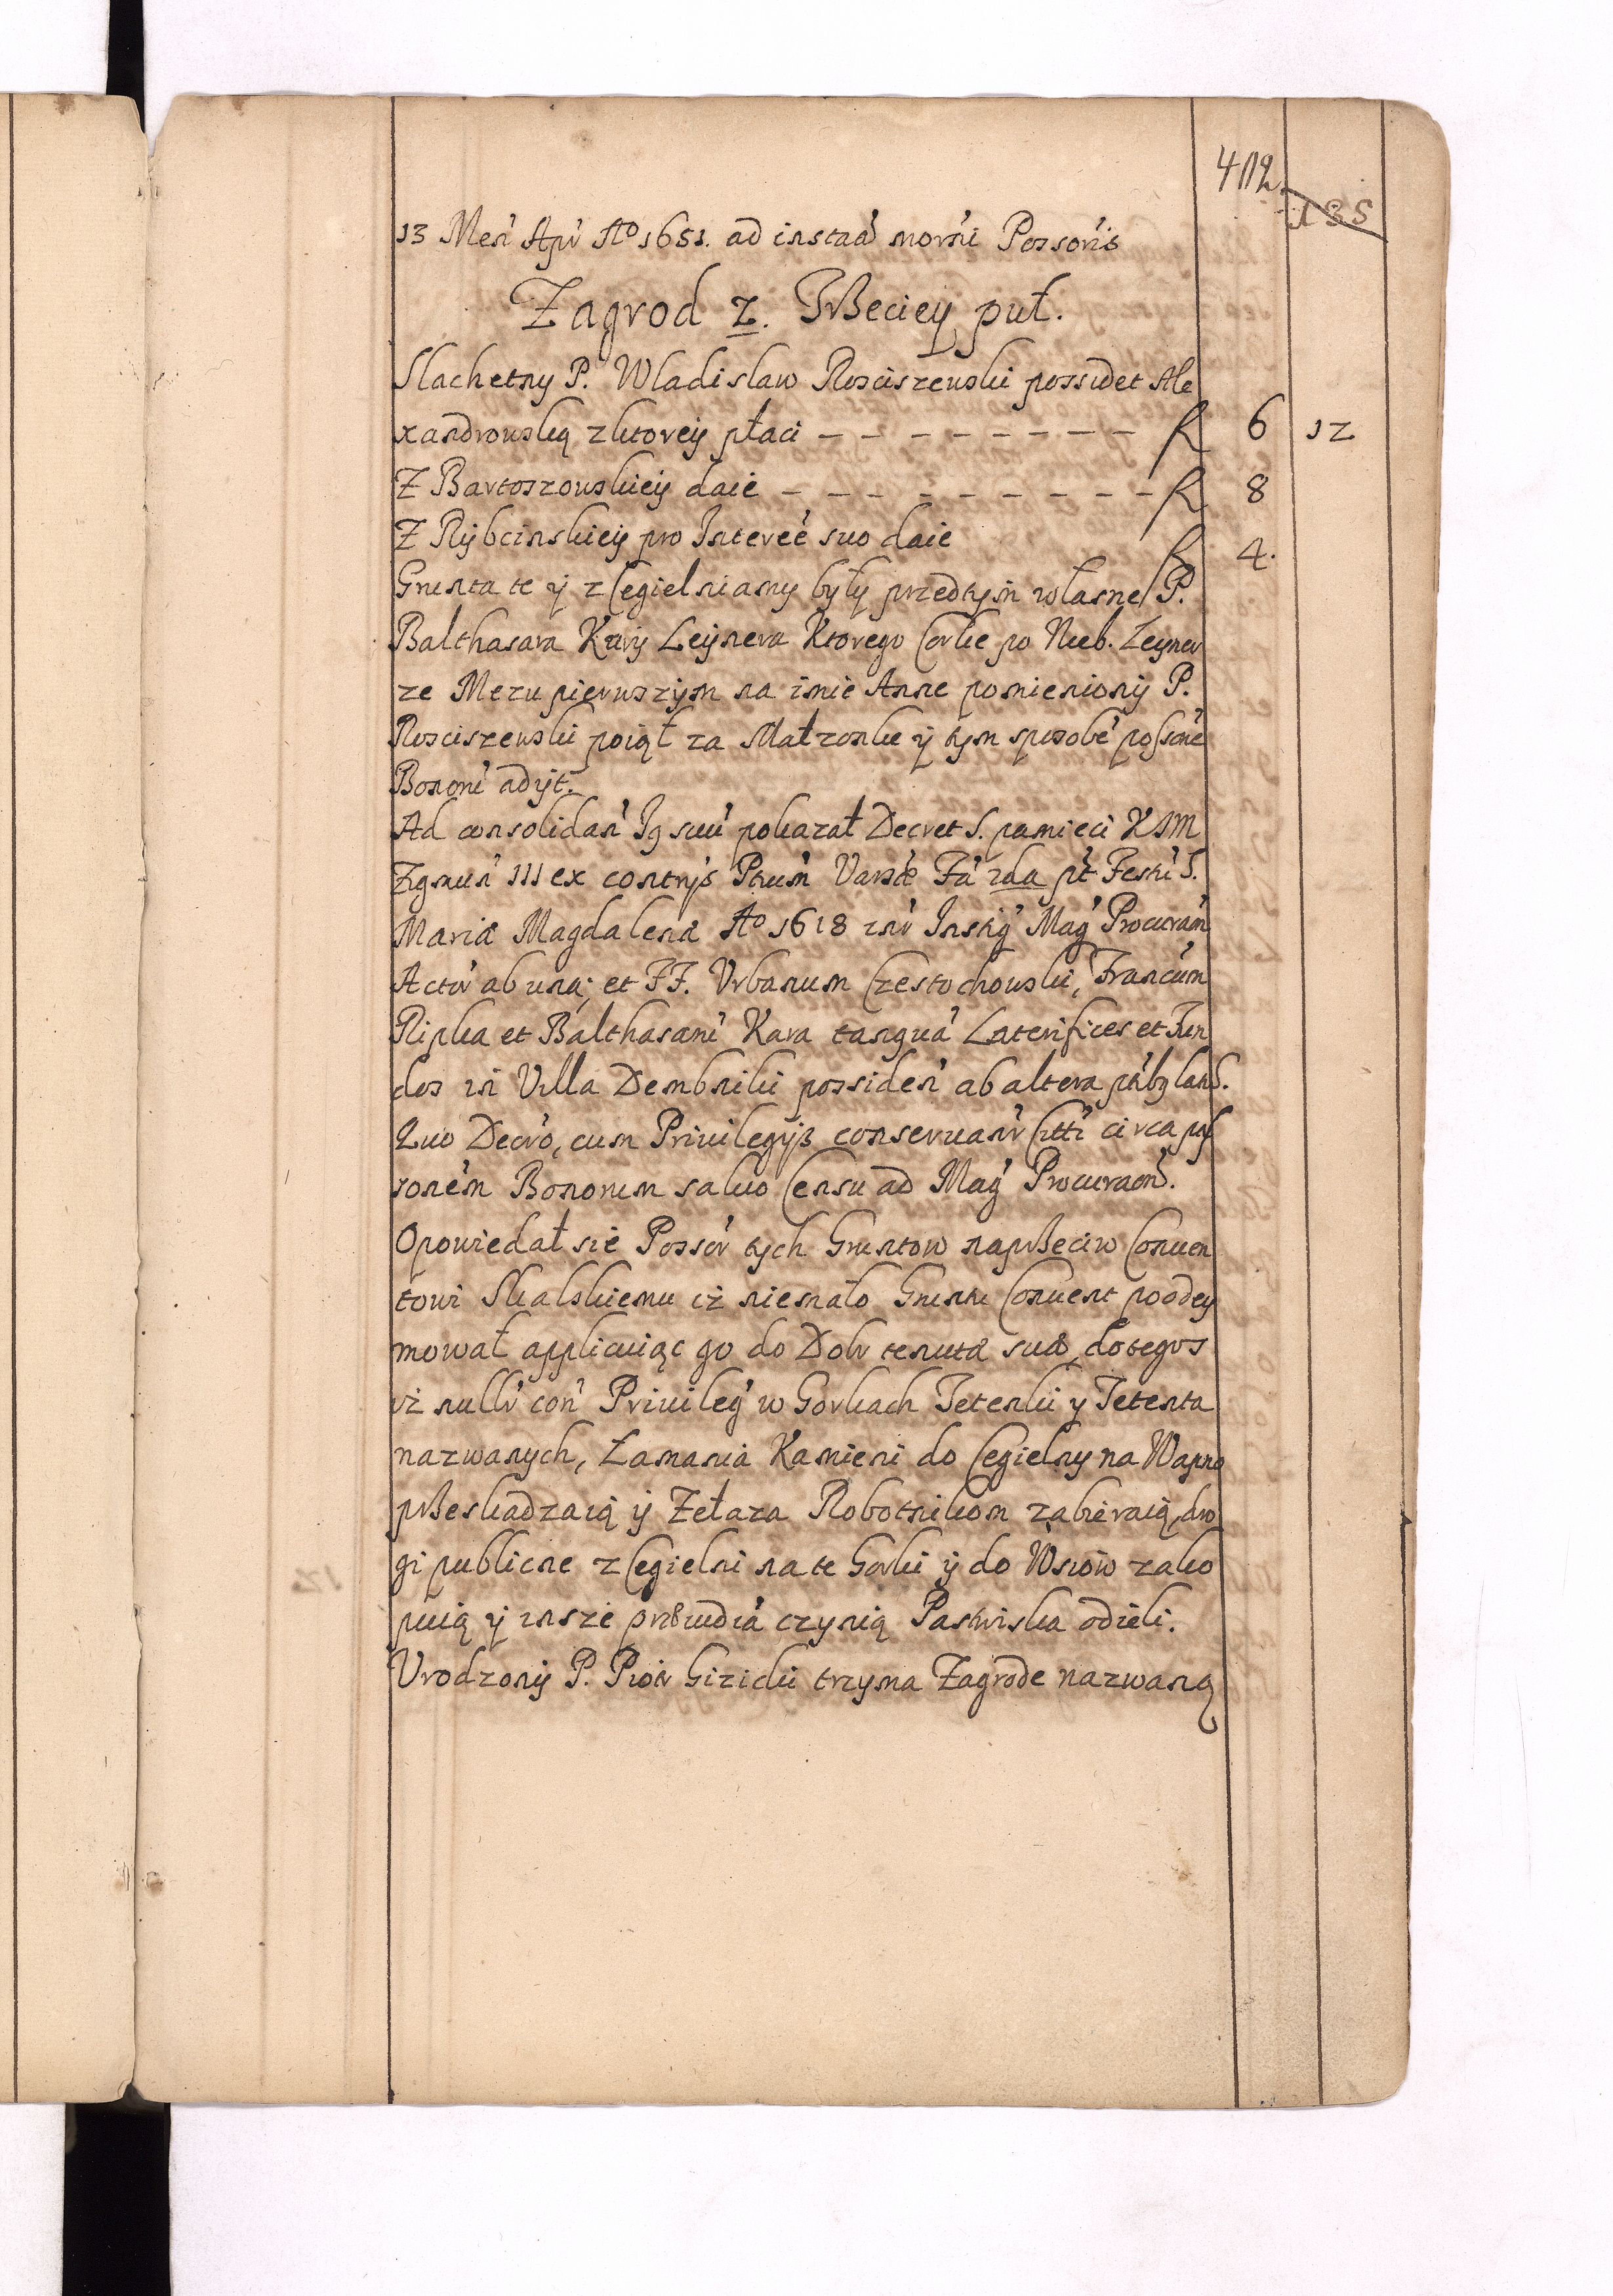 412.
135
13 Men Apr Ao 1651. ad instaā mornī Possoris
Zagrod 2. Trzeciey puł.
Slachetny P. Wladislaw Rosciszewski possidet Ale
xandrowską z ktorey płaci – – – – – – – – – fl 6 12
Z Bartoszowskiey daie – – – – – – – – – fl 8
Z Rybcinskiey pro Interēe suo daie fl 4.
Grunta te y z Cegielniamy były przedtym własne P.
Balthasara Kary Leynera Ktorego Corke po Nieb. Leyner
ze Mezu pierwszym na imie Anne pomieniony P.
Rosciszewski poiął za Małzonke y tym sposobē possōne
Bonorū adijt.
Ad consolidan Jg suū pokazał Decret S. pamieci KJM
Zigmun III ex contrijs Ptium Varsæ Fā 2da pt Festū S.
Mariæ Magdalenæ Ao 1618 inr Instig Mag Procuram
Actor ab una; et FF. Vrbanum Czestochowski, Francūm
Ripka et Balthasarū Kara tanquā Laterifices et Fun
dos in Villa Dembniki possiden ab altera ptibg latā.
Quo Decro, cum Privilegijs conservanr Citti circa poss
ionem Bonorum salvo Censu ad Mag Procuraōn.
Opowiedał sie Possor tych Gruntow naprzeciw Conven
towi Skalskiemu iż niemało Gruntu Convent poodey
mował applicuiąc go do Dobr tenutæ suæ, do tegoss
iż nullr con Privileg w Gorkach Tetenki y Tetenta
nazwanych, Łamania Kamieni do Cegielny na Wapno
przeskadzaią y Zełaza Robotnikom zabieraią, dro
gi publicne z Cegielni na te Gorki y do Wsiow zako
puią y insze præiudia czynią Pastwiska odieli.
Vrodzony P. Piotr Gizicki trzyma Zagrode nazwaną